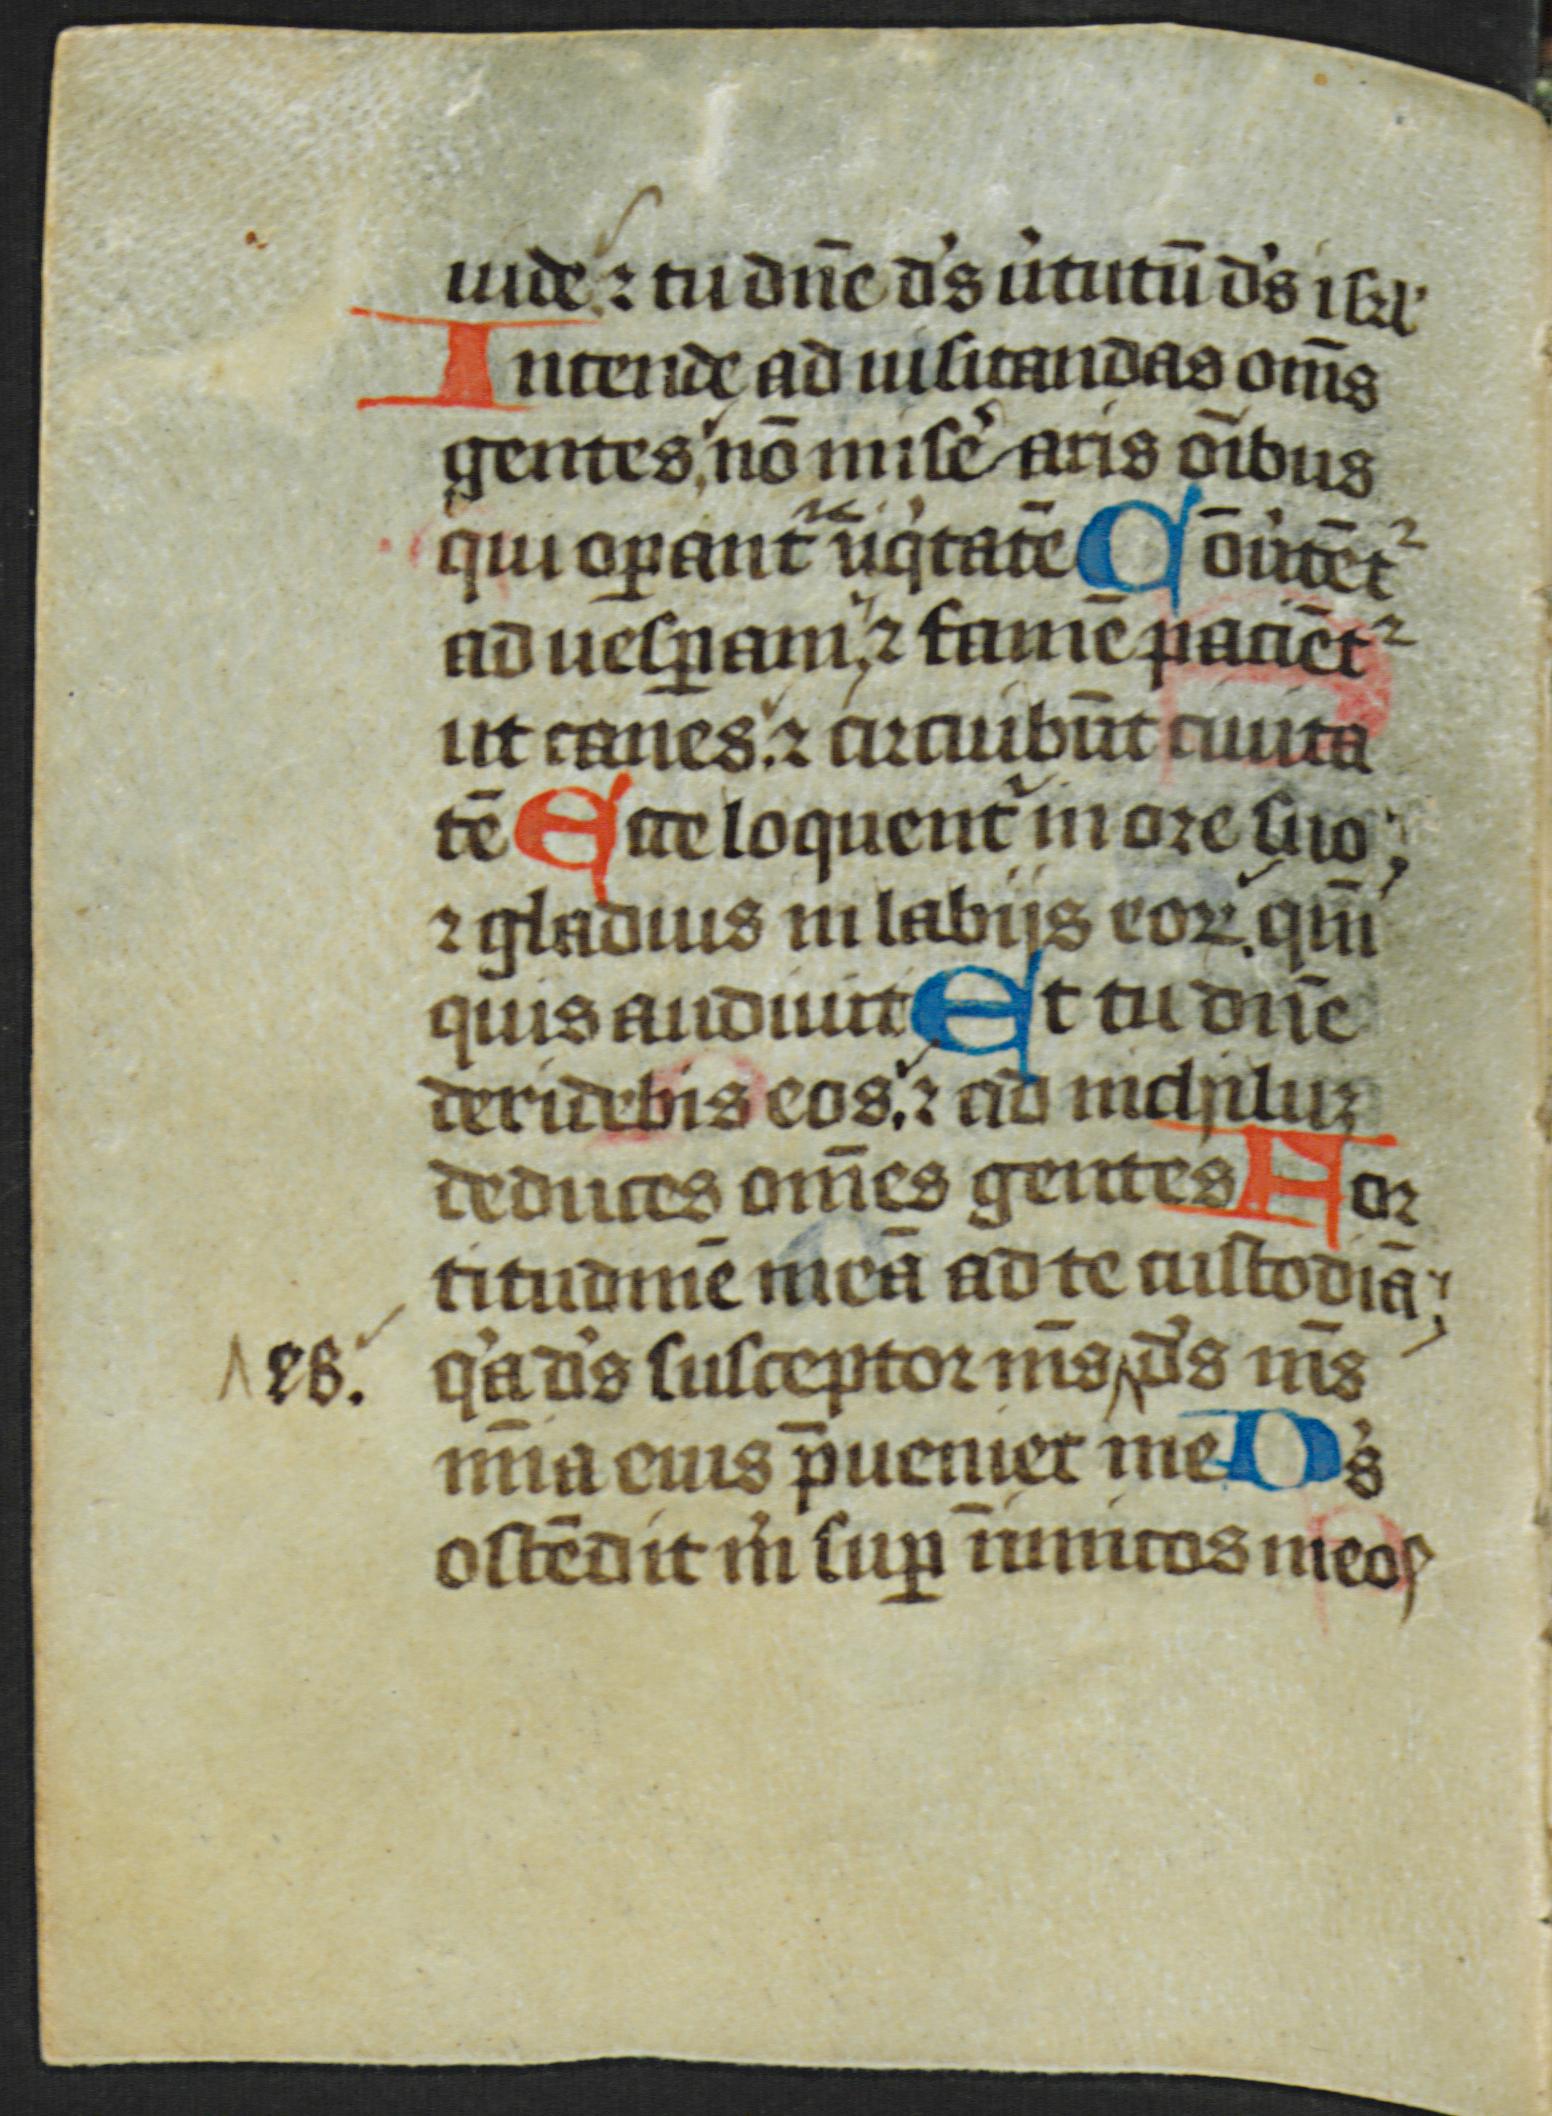 uide ⁊ tu dn̄e d's u̓tutū d's isrl'
Intende ad uisitandas om̄s
gentes nō misẻaris oībus
qui oꝑant᷑ īiq̓tatē Cōu̓tēt᷑
ad uesꝑam ⁊ famē paciēt᷑
ut canes. ⁊ circuibūt ciuita
tē Ecce loquent᷑ in ore suo
⁊ gladius in labijs eoꝝ. qm̄
quis audiuit Et tu dn̄e
deridebis eos. ⁊ ad nichiluꝫ
deduces om̄es gentes For
titudinē meā ad te custodiā
q̓a d's susceptor m̄s d's m̄s
mīa eius p̄ueniet me D's
ostēdit m̓ suꝑ inimicos meos